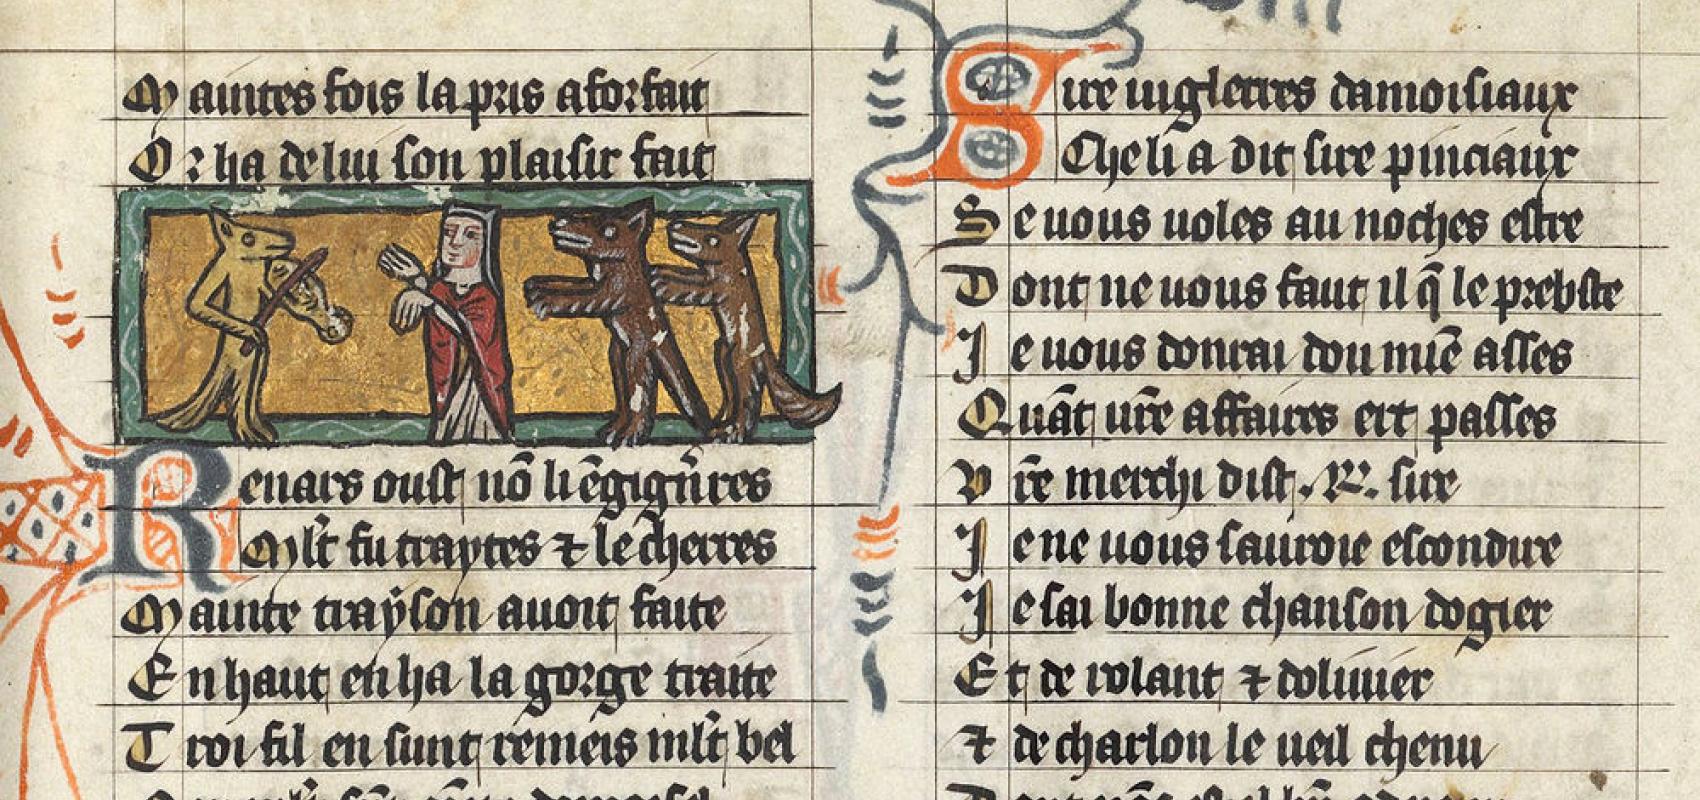 Maintes fois la pris a forfait
Or ha de lui son plaisir fait
Renars oust nō li ēgigñres
Mlt fu traytes ⁊ lecherres
Mainte traÿson auoit faite
En haut en ha la gorge traite
Troi fil en sunt remeis mlt bel
Sire iuglerres damoisiaux
Cheli a dit sire pinciaux
Se uous uoles au noches estre
Dont ne uous faut il q̄ le prebstre
Je uous donrai dou miē asses
Quāt ur̄e affaires ert passes
Vr̄e merchi dist .R. sire
Je ne uous sauroie escondire
Je sai bonne chanson dogier
Et de rolant ⁊ doliuier
⁊ de charlon le ueil chenu